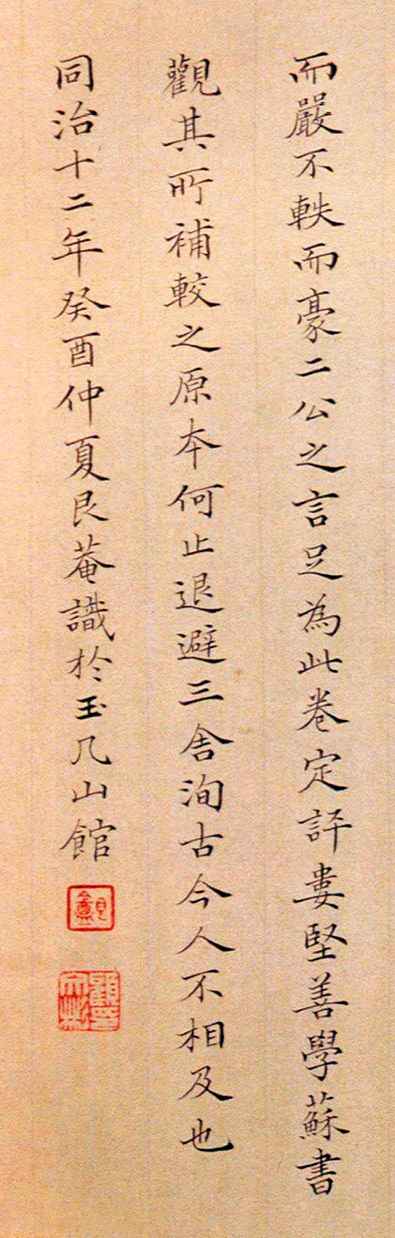 而嚴不軼而豪二公之言足為此卷定評婁堅善學蘇書
觀其所補較之原本何止退避三舍洵古今人不相及也
同治十二年癸酉仲夏艮菴識於玉几山館